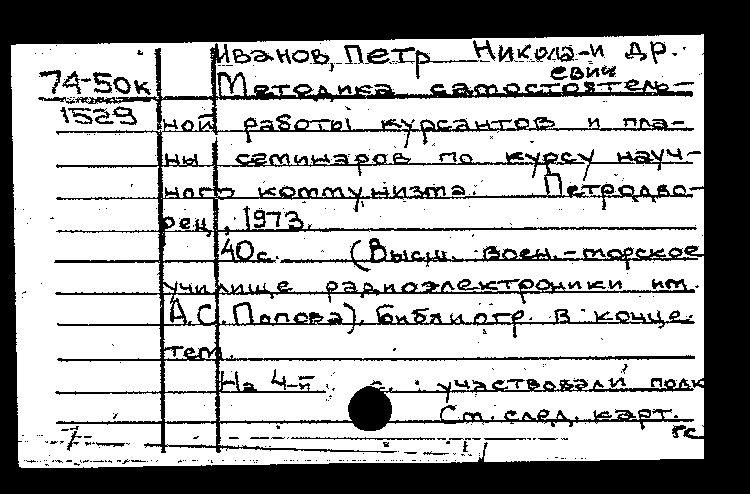 Иванов, Петр Никола- и др.
евич
74-50к Методика самостоятель-
1529
ной работы курсантов и пла-
ны семинаров по курсу науч-
ного коммунизма. Петродво-
рец, 1973.
40с. (Высш. воен.-морское
училище радиоэлектроники им.
А.С. Попова). Библиогр. в конце
тем.
На 4-й с. : участвовали полк
См. след. карт.
гс